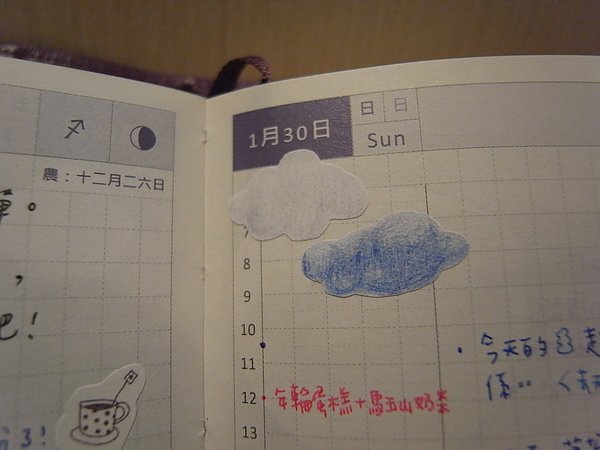 農：十二月二六日
。
，
吧！
3！
1月30日
日 日
Sun
7
8
9
10
11
12
13
年輪蛋糕+馬五山奶茶
• 今天的
係：：